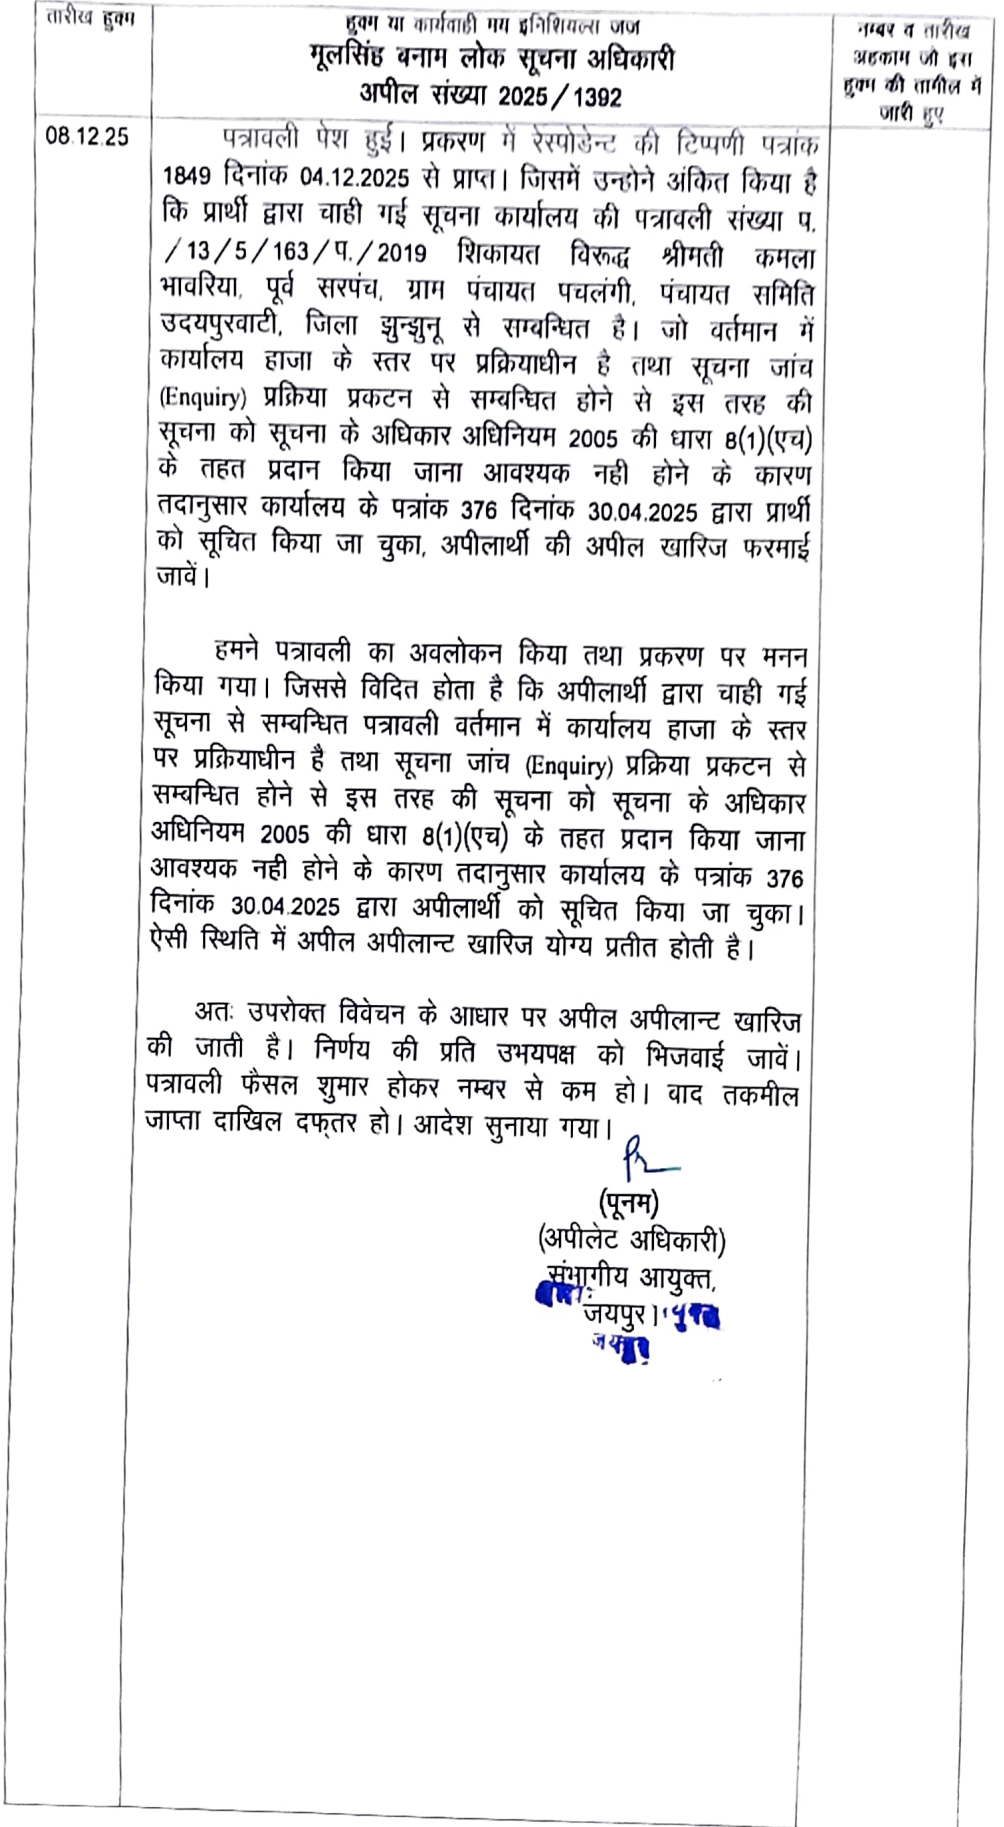 तारीख हुक्म
हुक्म या कार्यवाही मय इनिशियल्स जज
मूलसिंह बनाम लोक सूचना अधिकारी
अपील संख्या 2025/1392
नम्बर व तारीख
अहकाम जो इस
हुक्म की तामील में
जारी हुए
08.12.25
पत्रावली पेश हुई। प्रकरण में रेस्पोडेन्ट की टिप्पणी पत्रांक
1849 दिनांक 04.12.2025 से प्राप्त। जिसमें उन्होने अंकित किया है
कि प्रार्थी द्वारा चाही गई सूचना कार्यालय की पत्रावली संख्या प.
/13/5/163/प./2019 शिकायत विरूद्ध श्रीमती कमला
भावरिया, पूर्व सरपंच, ग्राम पंचायत पचलंगी, पंचायत समिति
उदयपुरवाटी, जिला झुन्झुनू से सम्बन्धित है। जो वर्तमान में
कार्यालय हाजा के स्तर पर प्रक्रियाधीन है तथा सूचना जांच
(Enquiry) प्रक्रिया प्रकटन से सम्बन्धित होने से इस तरह की
सूचना को सूचना के अधिकार अधिनियम 2005 की धारा 8(1)(एच)
के तहत प्रदान किया जाना आवश्यक नही होने के कारण
तदानुसार कार्यालय के पत्रांक 376 दिनांक 30.04.2025 द्वारा प्रार्थी
को सूचित किया जा चुका, अपीलार्थी की अपील खारिज फरमाई
जावें।
हमने पत्रावली का अवलोकन किया तथा प्रकरण पर मनन
किया गया। जिससे विदित होता है कि अपीलार्थी द्वारा चाही गई
सूचना से सम्बन्धित पत्रावली वर्तमान में कार्यालय हाजा के स्तर
पर प्रक्रियाधीन है तथा सूचना जांच (Enquiry) प्रक्रिया प्रकटन से
सम्बन्धित होने से इस तरह की सूचना को सूचना के अधिकार
अधिनियम 2005 की धारा 8(1)(एच) के तहत प्रदान किया जाना
आवश्यक नही होने के कारण तदानुसार कार्यालय के पत्रांक 376
दिनांक 30.04.2025 द्वारा अपीलार्थी को सूचित किया जा चुका।
ऐसी स्थिति में अपील अपीलान्ट खारिज योग्य प्रतीत होती है।
अतः उपरोक्त विवेचन के आधार पर अपील अपीलान्ट खारिज
की जाती है। निर्णय की प्रति उभयपक्ष को भिजवाई जावें।
पत्रावली फैसल शुमार होकर नम्बर से कम हो। वाद तकमील
जाप्ता दाखिल दफ्तर हो। आदेश सुनाया गया।
(पूनम)
(अपीलेट अधिकारी)
संभागीय आयुक्त,
जयपुर।